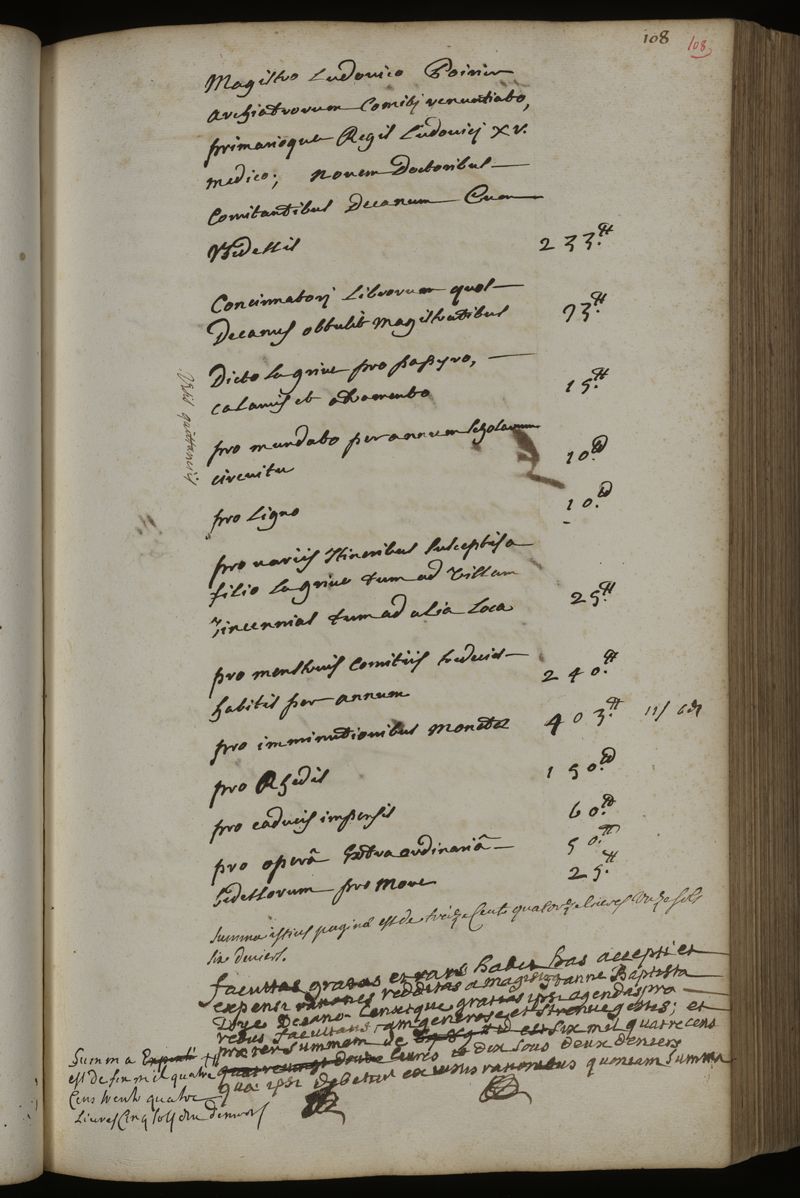 108 108
Magistro Ludovico Poirier
archiatrorum Comiti renuntiato,
primarioque Regis Ludovici XV.
medico; novem Doctoribus
Comitantibus Decanum Cum
Bidellis 233.tt
Concinnatori Librorum quos
Decanus obtulit Magistratibus 73.tt
Dicto Lagrive pro papyro,
calamis et atramento 15.tt
pro mundato per annum scholarum
circuitu 10.tt
pro Ligno 10.tt
pro variis Itineribus susceptis a
filio Lagrive tum ad Villam
Vincennias tum ad alia Loca 25.tt
pro menstruis Comitiis tredecies
habitis per annum 240.tt
pro imminutionibus Monetae 403.tt 11s 6d
pro Rhedis 150.tt
pro caducis impensis 60.tt
pro operâ Extraordinariâ 50.tt
bidellorum pro More 25.tt
Summa istius paginae est de treize Cents quatorze Livres onze sols
six deniers.
facultas gratas et rares habet has accepti et
expensi rationes redditas a magistro Joanne Baptista
Doye Decano Censetque gratias ipsi agendas pro
rebus facultatis tam generose et strenue gestis; et
praeter summam de six mil quatre cens
livres dix sous deux deniers
quae ipsi debetur ex rationibus quoniam Summa
Summa Expensi
est de six mil quatre
Cens trente quatre
Livres Cinq sols deniers